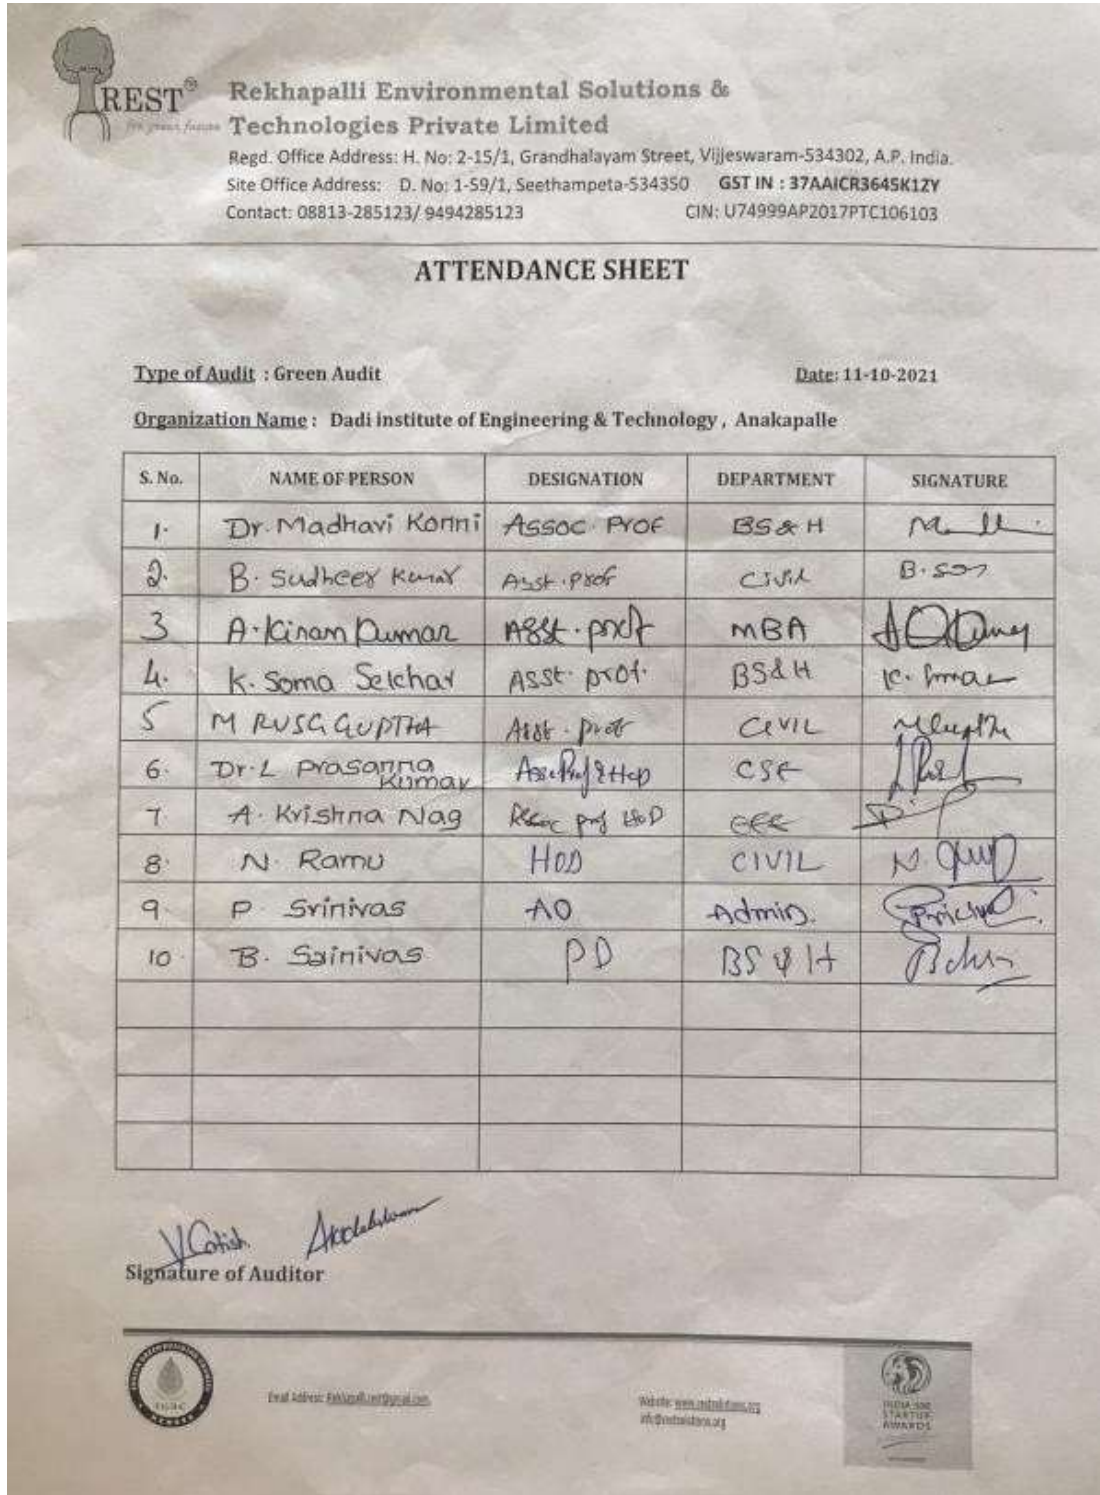 REST®
for green future
Rekhapalli Environmental Solutions &
Technologies Private Limited
Regd. Office Address: H. No: 2-15/1, Grandhalayam Street, Vijjeswaram-534302, A.P. India.
Site Office Address: D. No: 1-59/1, Seethampeta-534350 GST IN : 37AAICR3645K1ZY
Contact: 08813-285123/ 9494285123 CIN: U74999AP2017PTC106103
ATTENDANCE SHEET
Type of Audit : Green Audit Date: 11-10-2021
Organization Name : Dadi institute of Engineering & Technology , Anakapalle
S. No. NAME OF PERSON DESIGNATION DEPARTMENT SIGNATURE
1. Dr. Madhavi Konni Assoc. Prof BS&H
2. B. Sudheer Kumar Asst. prof Civil
3 A. Kiran Kumar Asst. prof MBA
4. K. Soma Sekhar Asst. prof. BS&H
5 M RUSG GUPTHA Asst. prof CIVIL
6. Dr. L Prasanna Kumar CSE
7 A. Krishna Nag Assoc prof HOD EEE
8. N. Ramu HOD CIVIL
9. P. Srinivas AO Admin.
10. B. Srinivas PD BS & H
Signature of Auditor
Email Address: Rekhapalli.rest@gmail.com
INDIA 500
STARTUP
AWARDS